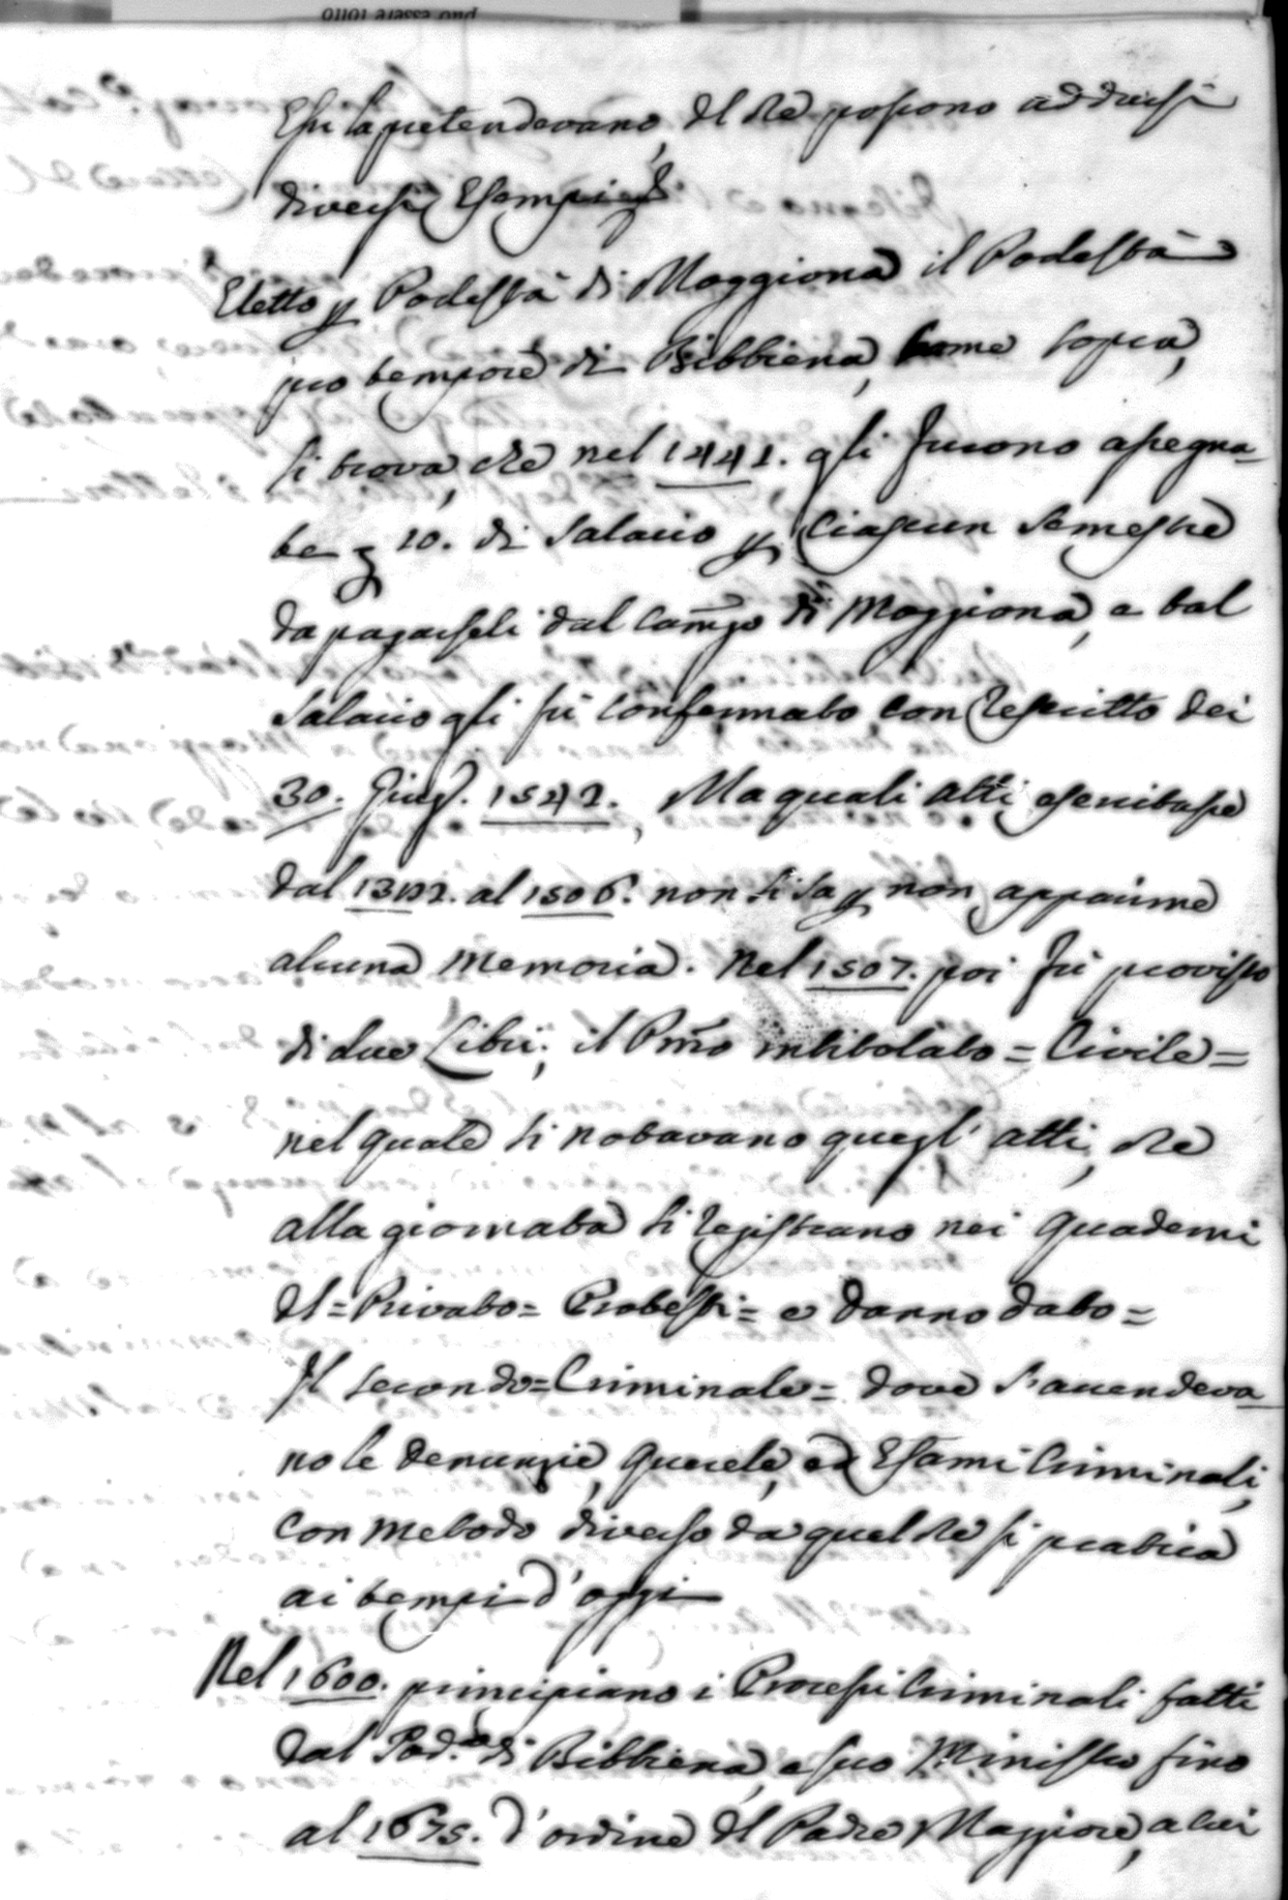 Essi la pretendevano, del che possono addursi
diversi Esempi
Eletto p Podestà di Moggiona il Podestà
pro tempore di Bibbiena, come sopra,
si trova, che nel 1441. gli furono assegna-
te 10. di Salario p Ciascun Semestre
da pagarseli dal Camgo di Moggiona, e tal
Salario gli fù Confermato con Rescritto dei
30. Giug. 1542. Ma quali atti esercitasse
dal 1382. al 1506. non si sa p non apparirne
alcuna memoria. Nel 1507. poi fù provisto
di due Libri; il Pmo intitolato = Civile =
nel quale si notavano quegl' atti, che
alla giornata si Registrano nei Quaderni
del = Privato = Protesti = e Danno dato =
Il secondo = Criminale = dove s'accendeva
no le Denunzie, Querele, ed Esami Criminali,
Con Metodo diverso da quel che si pratica
ai tempi d'oggi
Nel 1600. principiano i Processi Criminali fatti
dal Pod.à di Bibbiena, e suo Ministro fino
al 1675. d'ordine del Padre Maggiore, a cui